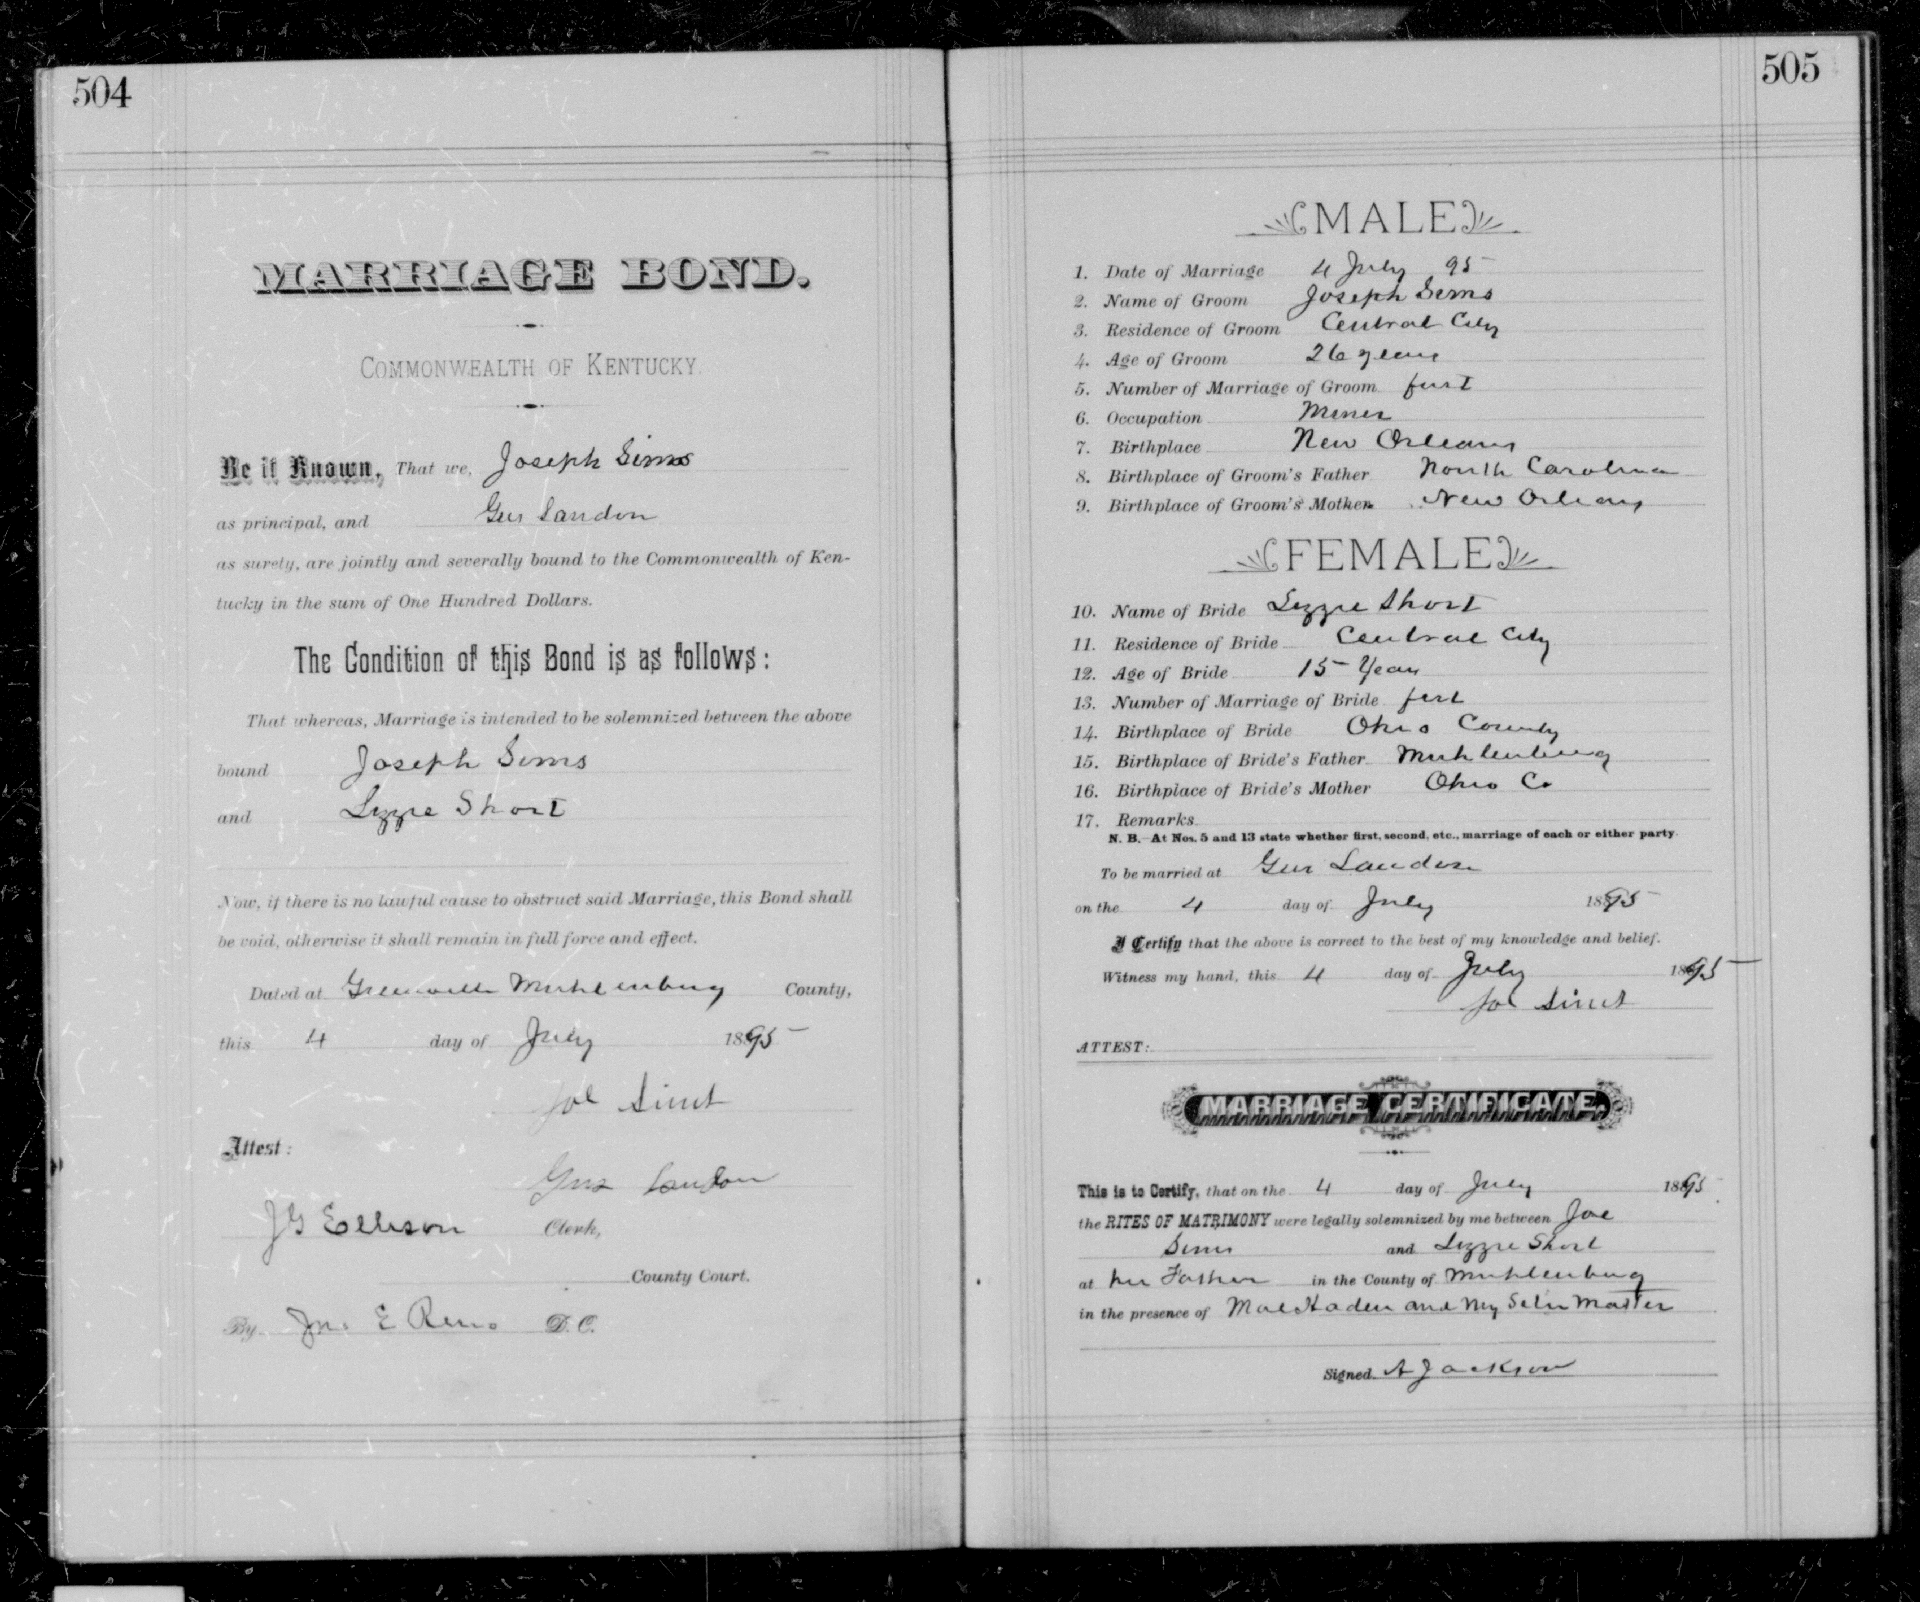 504
MARRIAGE BOND.
COMMONWEALTH OF KENTUCKY.
Be it Known, That we, Joseph Sims
as principal, and Gus Landon
as surety, are jointly and severally bound to the Commonwealth of Ken-
tucky in the sum of One Hundred Dollars.
The Condition of this Bond is as follows:
That whereas, Marriage is intended to be solemnized between the above
bound Joseph Sims
and Lizzie Short
Now, if there is no lawful cause to obstruct said Marriage, this Bond shall
be void, otherwise it shall remain in full force and effect.
Dated at Greenville Muhlenburg County,
this 4 day of July 1895
Joe
Attest:
Gus Landon
JG Ellison Clerk,
County Court.
By Jno E Reno D.C.
505
MALE
1. Date of Marriage 4 July 95
2. Name of Groom Joseph Sims
3. Residence of Groom Central City
4. Age of Groom 26 years
5. Number of Marriage of Groom first
6. Occupation Miner
7. Birthplace New Orleans
8. Birthplace of Groom's Father North Carolina
9. Birthplace of Groom's Mother New Orleans
FEMALE
10. Name of Bride Lizzie Short
11. Residence of Bride Central City
12. Age of Bride 15 Years
13. Number of Marriage of Bride first
14. Birthplace of Bride Ohio County
15. Birthplace of Bride's Father Muhlenburg
16. Birthplace of Bride's Mother Ohio Co
17. Remarks
N. B.—At Nos. 5 and 13 state whether first, second, etc., marriage of each or either party.
To be married at Gus Landon
on the 4 day of July 1895
I Certify that the above is correct to the best of my knowledge and belief.
Witness my hand, this 4 day of July 1895
Joe
ATTEST:
MARRIAGE CERTIFICATE.
This is to Certify, that on the 4 day of July 1895
the RITES OF MATRIMONY were legally solemnized by me between Joe
Sims and Lizzie Short
at her Father in the County of Muhlenburg
in the presence of Haden and Master
Signed A Jackson